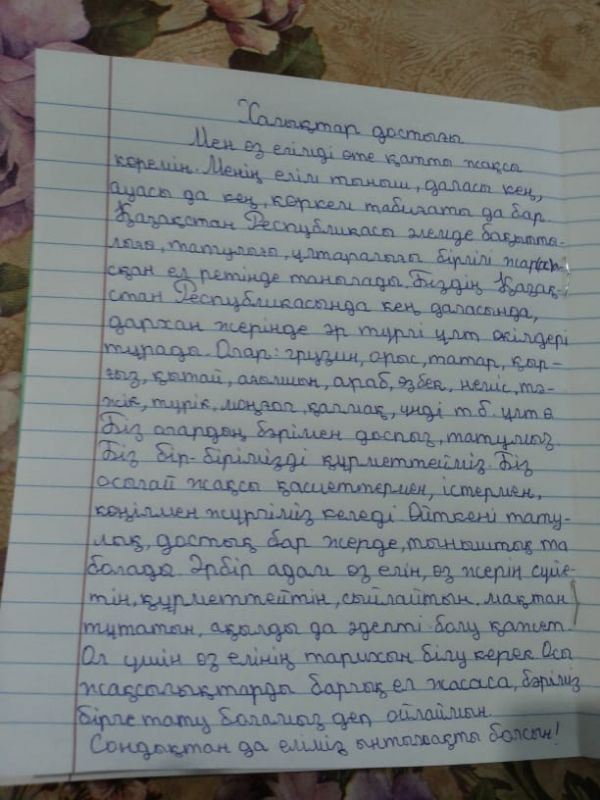 Халықтар достығы
Мен өз елімді өте қатты жақсы
көремін. Менің елім тыныш, даласы кең,
ауасы да кең, көркем табиғаты да бар.
Қазақстан Республикасы әлемде бақытты-
лығы, татулығы, ұлтаралығы бірлігі
сқан ел ретінде танылады. Біздің Қазақ-
стан Республикасында кең даласында,
дархан жерінде әр түрлі ұлт өкілдері
тұрады. Олар: грузин, орыс, татар, қыр-
ғыз, қытай, ағылшын, араб, өзбек, неміс, тә-
жік, түрік, моңғол, қалмақ, үнді т.б. ұлт
Біз олардың бәрімен доспыз, татумыз.
Біз бір-бірімізді құрметтейміз. Біз
осылай жақсы қасиеттермен, істермен,
көңілмен жүргіміз келеді. Өйткені тату-
лық, достық бар жерде, тыныштық та
болады. Әрбір адам өз елін, өз жерін сүйе-
тін, құрметтейтін, сыйлайтын, мақтан
тұтатын, ақылды да әдепті болу қажет.
Ол үшін өз елінің тарихын білу керек. Осы
жақсылықтарды барлық ел жасаса, бәріміз
бірге тату боламыз деп ойлаймын.
Сондықтан да еліміз ынтымақты болсын!